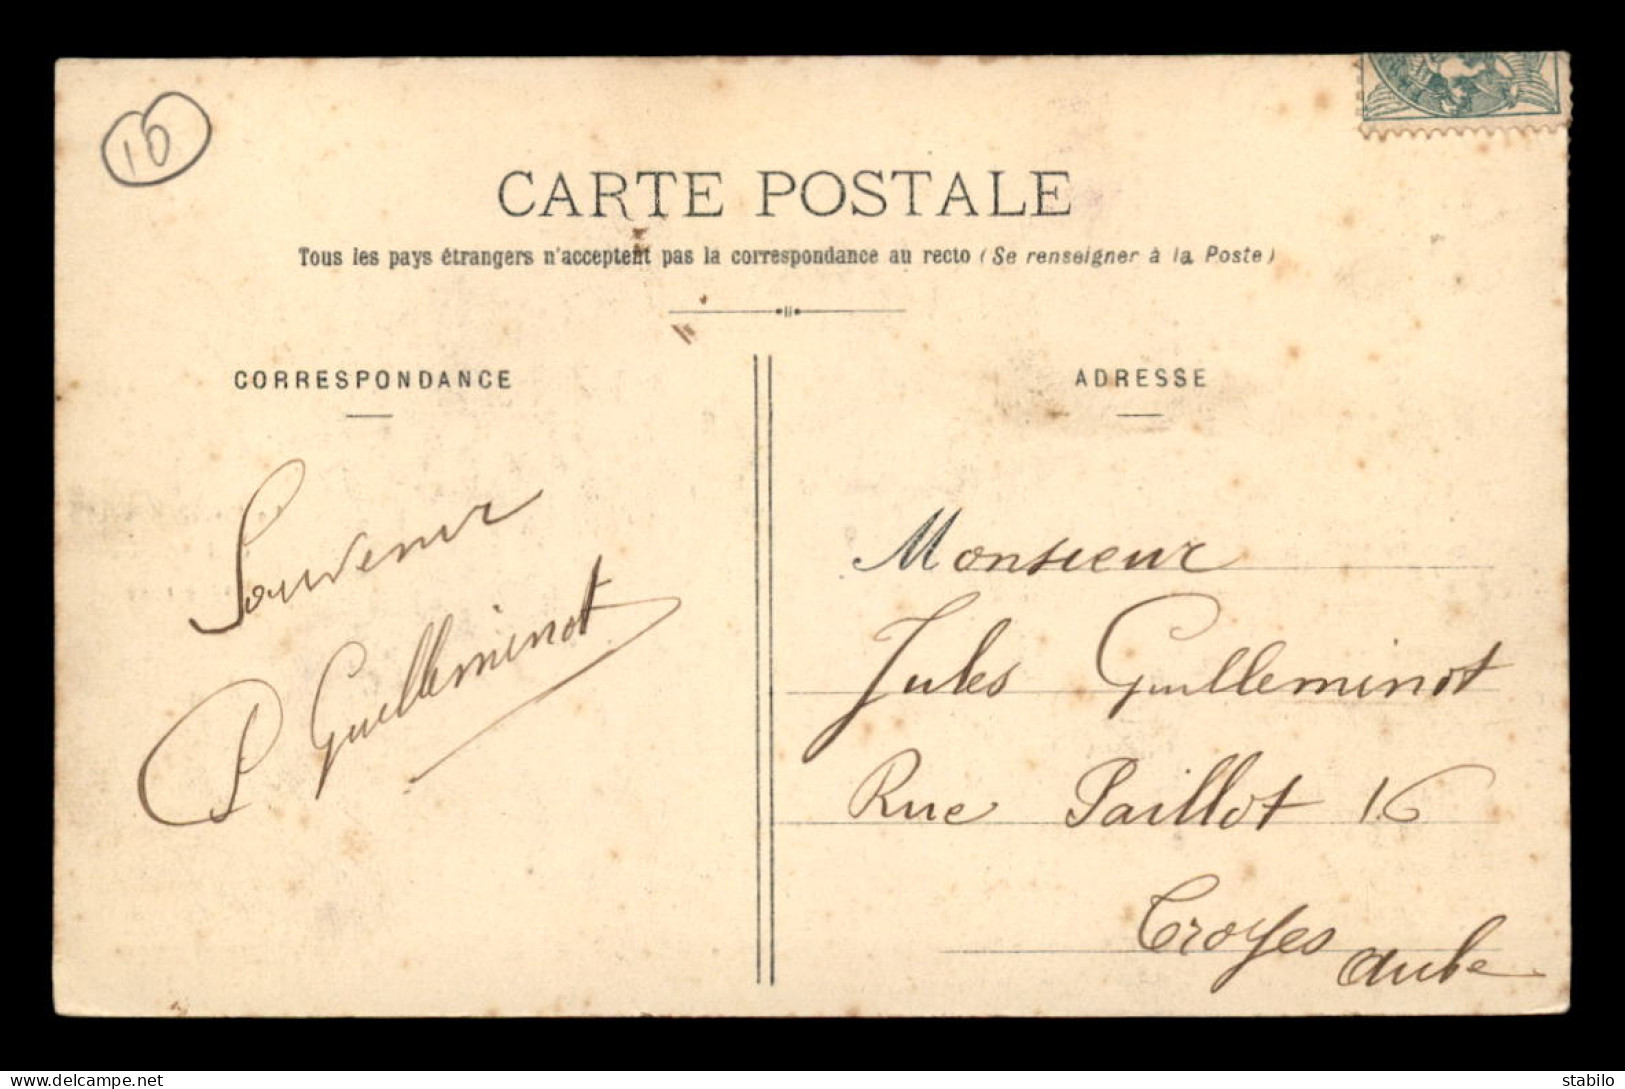 10
CARTE POSTALE
Tous les pays étrangers n'acceptent pas la correspondance au recto (Se renseigner à la Poste)
CORRESPONDANCE
Souvenir
P Guilleminot
ADRESSE
Monsieur
Jules Guilleminot
Rue Paillot 16
Troyes
Aube
www.delcampe.net
stabilo